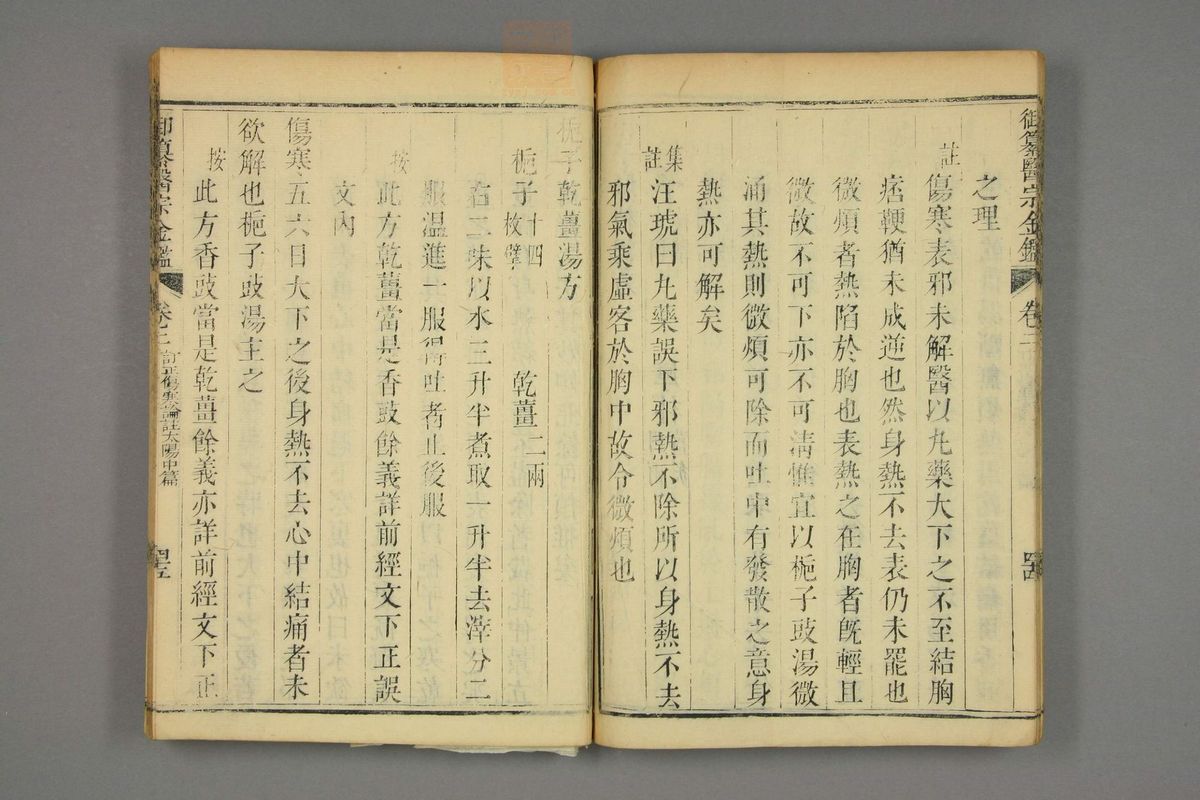 御纂醫宗金鑑 卷二 四四
之理
註 傷寒表邪未解醫以丸藥大下之不至結胸
痞鞕猶未成逆也然身熱不去表仍未罷也
微煩者熱陷於胸也表熱之在胸者既輕且
微故不可下亦不可清惟宜以梔子豉湯微
涌其熱則微煩可除而吐中有發散之意身
熱亦可解矣
集註 汪琥曰丸藥誤下邪熱不除所以身熱不去
邪氣乘虛客於胸中故令微煩也
梔子乾薑湯方
梔子十四枚擘 乾薑二兩
右二味以水三升半煮取一升半去滓分二
服溫進一服得吐者止後服
按 此方乾薑當是香豉餘義詳前經文下正誤
文內
傷寒五六日大下之後身熱不去心中結痛者未
欲解也梔子豉湯主之
按 此方香豉當是乾薑餘義亦詳前經文下正
御纂醫宗金鑑 卷二 訂正傷寒論註太陽中篇 四五